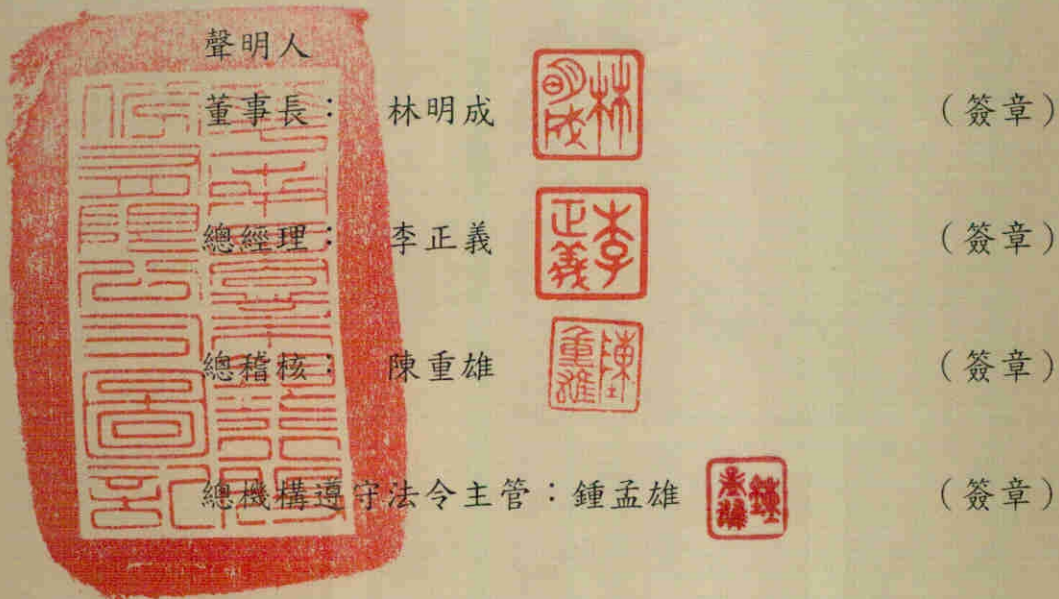 聲明人
董事長： 林明成 林明成 （簽章）
總經理： 李正義 李正義 （簽章）
總稽核： 陳重雄 陳重雄 （簽章）
總機構遵守法令主管：鍾孟雄 （簽章）